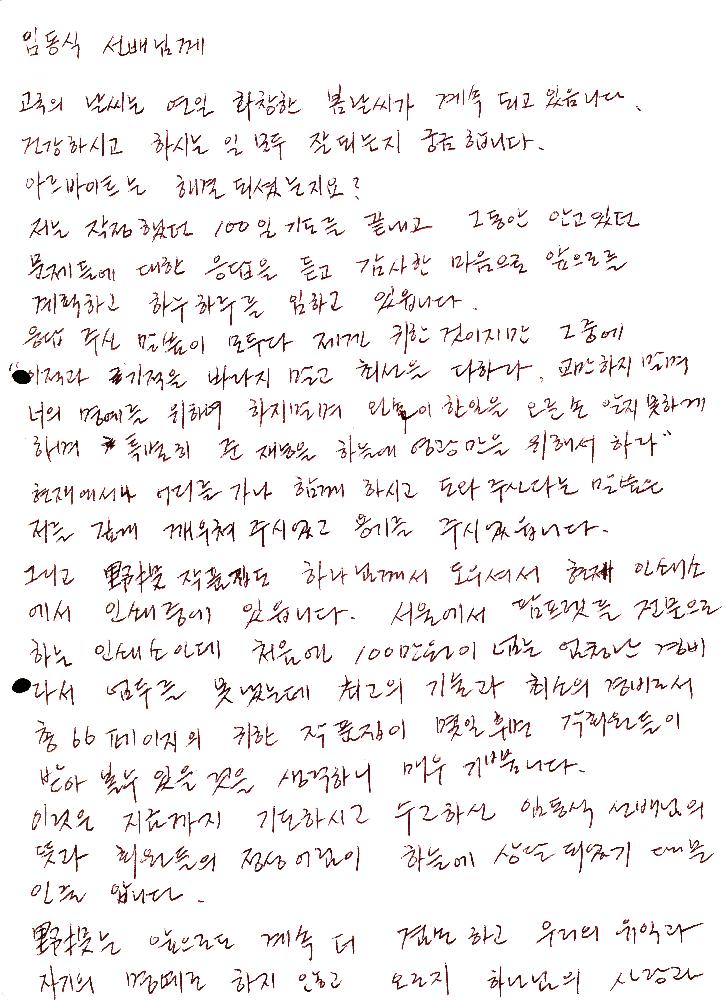 임동식 선배님께
고국의 날씨는 연일 화창한 봄날씨가 계속 되고 있읍니다.
건강하시고 하시는 일 모두 잘되는지 궁금 합니다.
아르바이트는 해결 되셨는지요?
저는 작정했던 100일 기도를 끝내고 그동안 안고있던
문제들에 대한 응답을 듣고 감사한 마음으로 앞으로를
계획하고 하루하루를 임하고 있읍니다.
응답 주신 말씀이 모두다 제게 귀한 것이지만 그중에
"이적과 기적을 바라지 말고 최선을 다하라. 교만하지 말며
너의 명예를 위하여 하지말며 왼손이 한일을 오른손 알지 못하게
하며 특별히 준 재능을 하늘에 영광만을 위해서 하라"
현재에서나 어디를 가나 함께 하시고 도와 주신다는 말씀은
저를 깊게 깨우쳐 주시었고 용기를 주시었읍니다.
그리고 野投 작품집도 하나님께서 도우셔서 현재 인쇄소
에서 인쇄중에 있읍니다. 서울에서 팜프렛을 전문으로
하는 인쇄소인데 처음엔 100만원이 넘는 엄청난 경비
라서 엄두를 못냈는데 최고의 기술과 최소의 경비로서
총 66 페이지의 귀한 작품집이 몇일후면 각회원들이
받아 볼수 있을 것을 생각하니 매우 기쁩니다.
이것은 지금까지 기도하시고 수고하신 임동식 선배님의
뜻과 회원들의 정성어림이 하늘에 상달 되었기 때문
인줄 압니다.
野投는 앞으로도 계속 더 겸손 하고 우리의 유익과
자기의 명예로 하지 않고 오로지 하나님의 사랑과